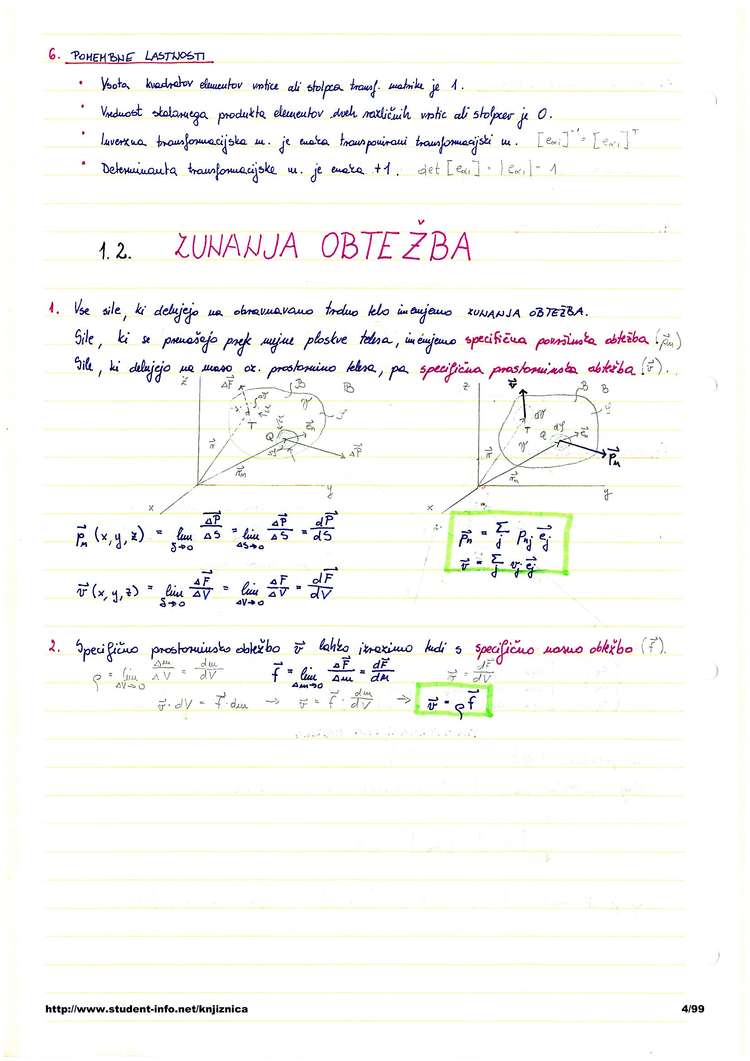 6. POMEMBNE LASTNOSTI
• Vsota kvadratov elementov vrstice ali stolpca transf. matrike je 1.
• Vrednost skalarnega produkta elementov dveh različnih vrstic ali stolpcev je 0.
• Inverzna transformacijska m. je enaka transponirani transformacijski m. [eαi]⁻¹ = [eαi]ᵀ
• Determinanta transformacijske m. je enaka +1. det[eαi] = |eαi| = 1
1.2. ZUNANJA OBTEŽBA
1. Vse sile, ki delujejo na obravnavano trdno telo imenujemo ZUNANJA OBTEŽBA.
Sile, ki se prenašajo prek mejne ploskve telesa, imenujemo specifična površinska obtežba (p⃗n)
Sile, ki delujejo na maso oz. prostornino telesa, pa specifična prostorninska obtežba (v⃗).
z ΔF⃗ B B
T Q r⃗ r⃗n ΔP⃗
x y
z v⃗ B B
T dV Q dS e⃗n r⃗ r⃗n p⃗n
x y
p⃗n (x,y,z) = lim δ→0 ΔP⃗/ΔS = lim ΔS→0 ΔP⃗/ΔS = dP⃗/dS
p⃗n = Σj pnj e⃗j
v⃗ (x,y,z) = lim δ→0 ΔF⃗/ΔV = lim ΔV→0 ΔF⃗/ΔV = dF⃗/dV
v⃗ = Σj vj e⃗j
2. Specifično prostorninsko obtežbo v⃗ lahko izrazimo tudi s specifično masno obtežbo (f⃗).
ρ = lim ΔV→0 Δm/ΔV = dm/dV f⃗ = lim Δm→0 ΔF⃗/Δm = dF⃗/dm v⃗ = dF⃗/dV
v⃗·dV = f⃗·dm → v⃗ = f⃗·dm/dV → v⃗ = ρf⃗
http://www.student-info.net/knjiznica 4/99